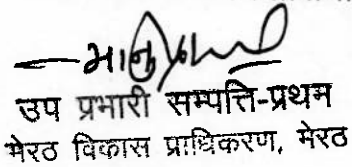 उप प्रभारी सम्पत्ति-प्रथम
मेरठ विकास प्राधिकरण, मेरठ